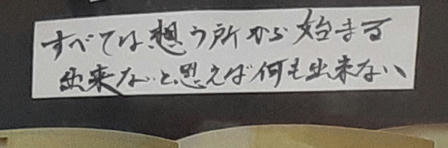 すべては想う所から始まる
出来ないと思えば何も出来ない